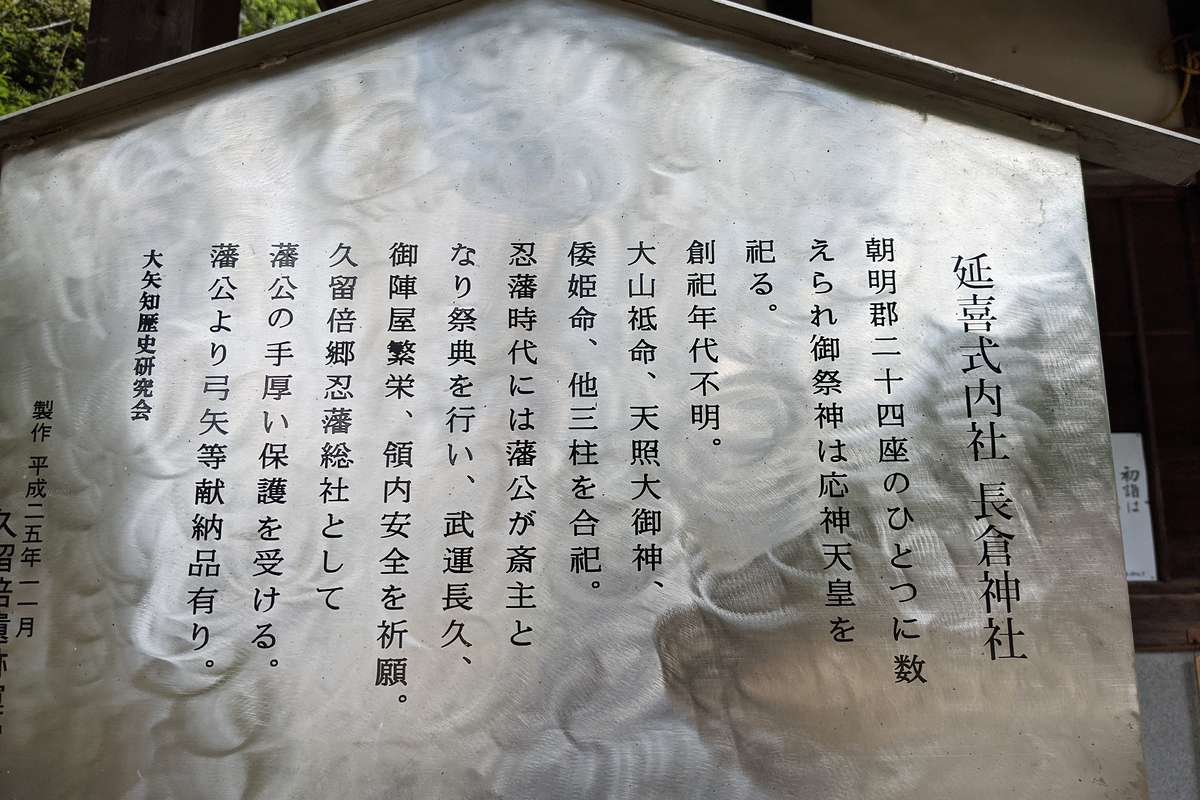 延喜式内社 長倉神社
朝明郡二十四座のひとつに数
えられ御祭神は応神天皇を
祀る。
創祀年代不明。
大山祗命、天照大御神、
倭姫命、他三柱を合祀。
忍藩時代には藩公が斎主と
なり祭典を行い、武運長久、
御陣屋繁栄、領内安全を祈願。
久留倍郷忍藩総社として
藩公の手厚い保護を受ける。
藩公より弓矢等献納品有り。
大矢知歴史研究会
製作 平成二五年一一月
久留倍遺跡
初詣は